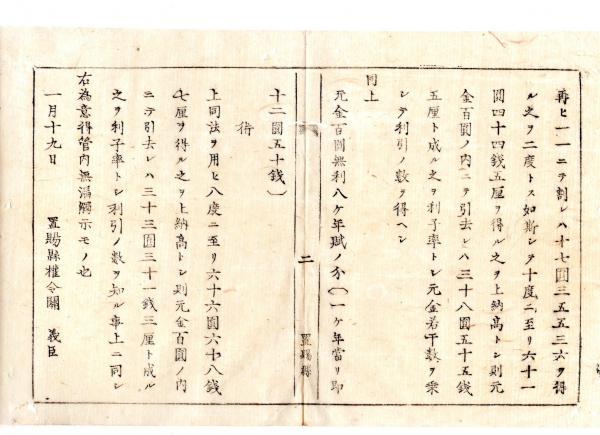 再ヒ一一ニテ割レハ十七圓三五五三六ヲ得
ル之ヲ二度トス如斯シテ十度ニ至リ六十一
圓四十四錢五厘ヲ得ル之ヲ上納高トシ則元
金百圓ノ内ニテ引去レハ三十八圓五十五錢
五厘ト成ル之ヲ利子率トシ元金若干數ヲ乘
シテ利引ノ數ヲ得ヘシ
同上
元金百圓無利八ケ年賦ノ分(一ケ年當リ即
二
置賜縣
十二圓五十錢)
術
上同法ヲ用ヒ八度ニ至リ六十六圓六十八錢
七厘ヲ得ル之ヲ上納高トシ則元金百圓ノ内
ニテ引去レハ三十三圓三十一錢三厘ト成ル
之ヲ利子率トシ利引ノ數ヲ知ル事上ニ同シ
右為意得管内無漏觸示モノ也
一月十九日
置賜縣權令關 義臣